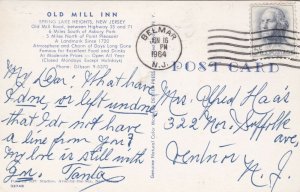 OLD MILL INN
SPRING LAKE HEIGHTS, NEW JERSEY
Old Mill Road, between Highways 35 and 71
6 Miles South of Asbury Park
4 Miles North of Point Pleasant
A Landmark Since 1720
Atmosphere and Charm of Days Long Gone
Famous for Excellent Food and Drinks
Moderate Prices — Open All Year
Closed Mondays (Except Holidays)
Phone: Gibson 9-
BELMAR
PM
1964
N.J.
POST CARD
My Dear: What have
I done, or left undone
that I do not have
a line from you?
My love is still with
you. Tanta
Mrs. Alfred Haas
322 No. Suffolk
ave,
Ventnor
N. J.